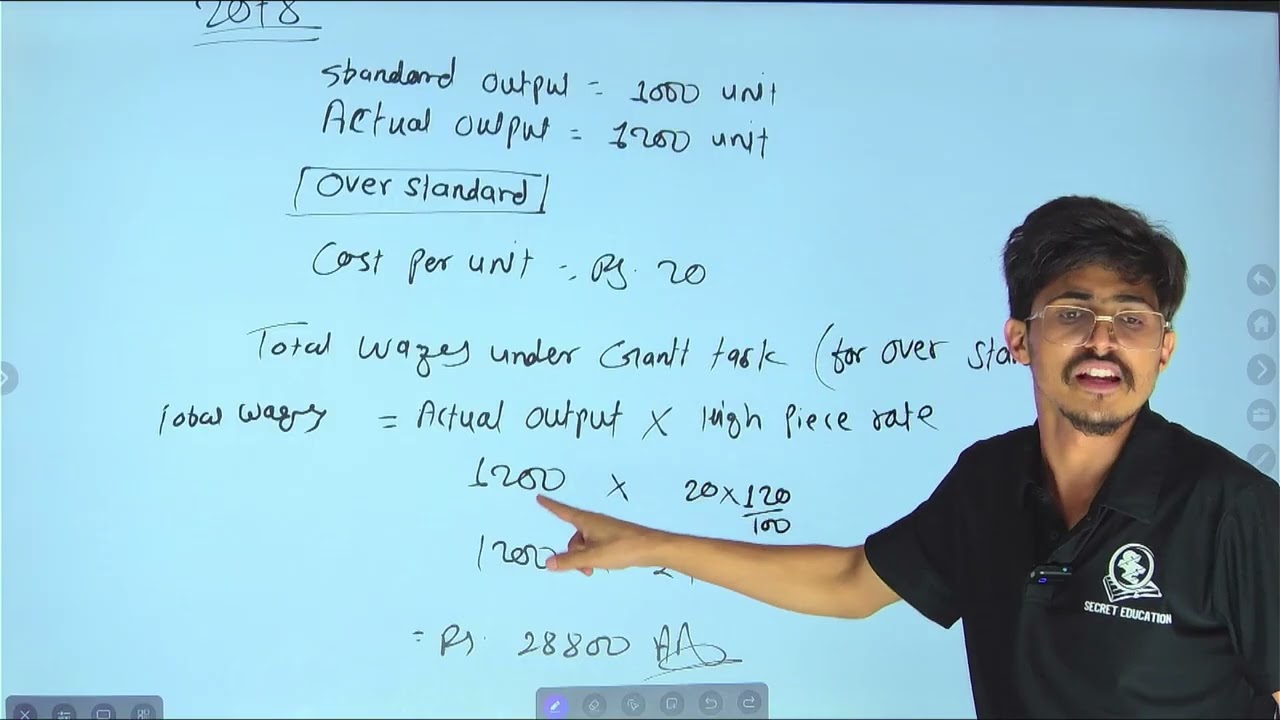 2078
Standard output = 1000 unit
Actual output = 1200 unit
Over standard
Cost per unit = Rs. 20
Total wages under Grantt task (for over sta
Total wages = Actual output × High piece rate
1200 × 20 × 120/100
1200
= Rs. 28800
SECRET EDUCATION